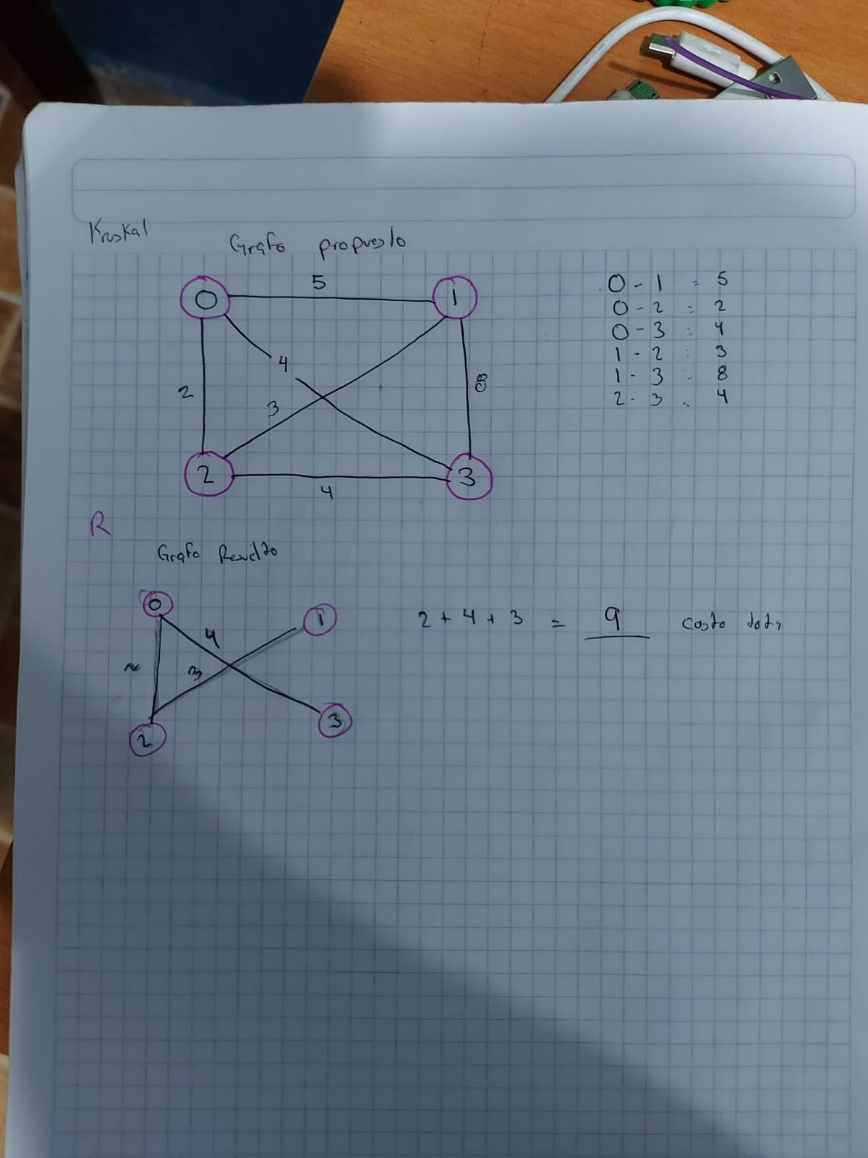 Kruskal
Grafo propuesto
0 5 1
2 4 3 8
2 4 3
0 - 1 = 5
0 - 2 : 2
0 - 3 : 4
1 - 2 : 3
1 - 3 - 8
2 - 3 . 4
R
Grafo
0 4 1
2 3
2 3
2 + 4 + 3 = 9 costo